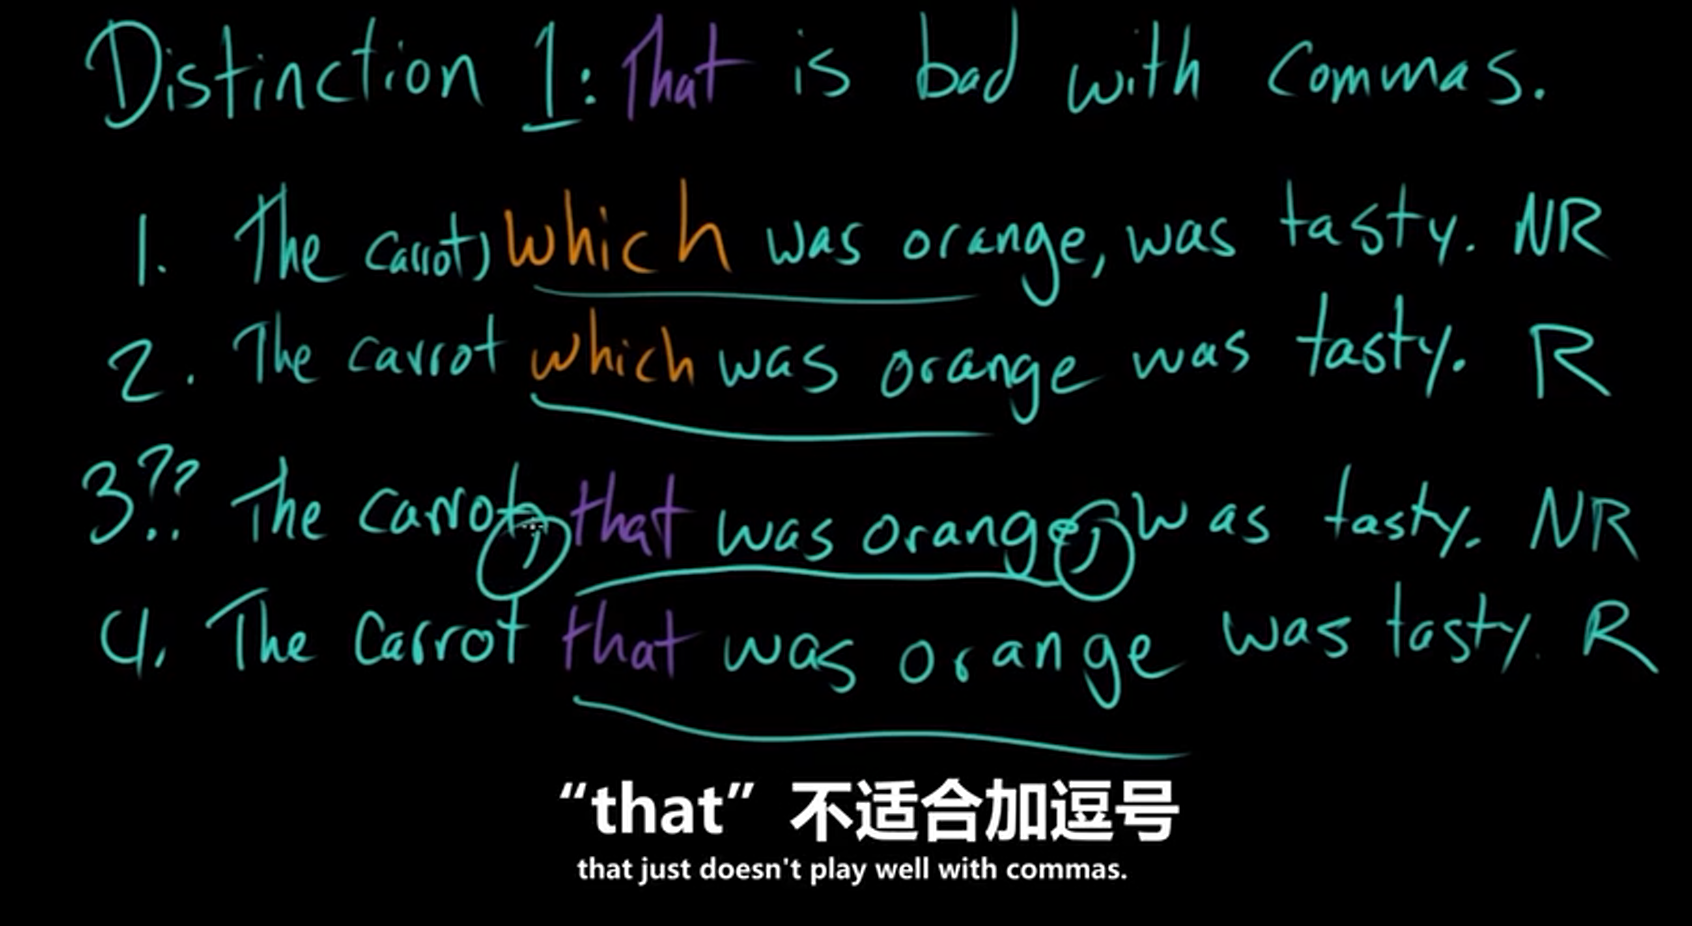 Distinction 1: That is bad with commas.
1. The carrot, which was orange, was tasty. NR
2. The carrot which was orange was tasty. R
3?? The carrot, that was orange, was tasty. NR
4. The carrot that was orange was tasty. R
“that”不适合加逗号
that just doesn't play well with commas.